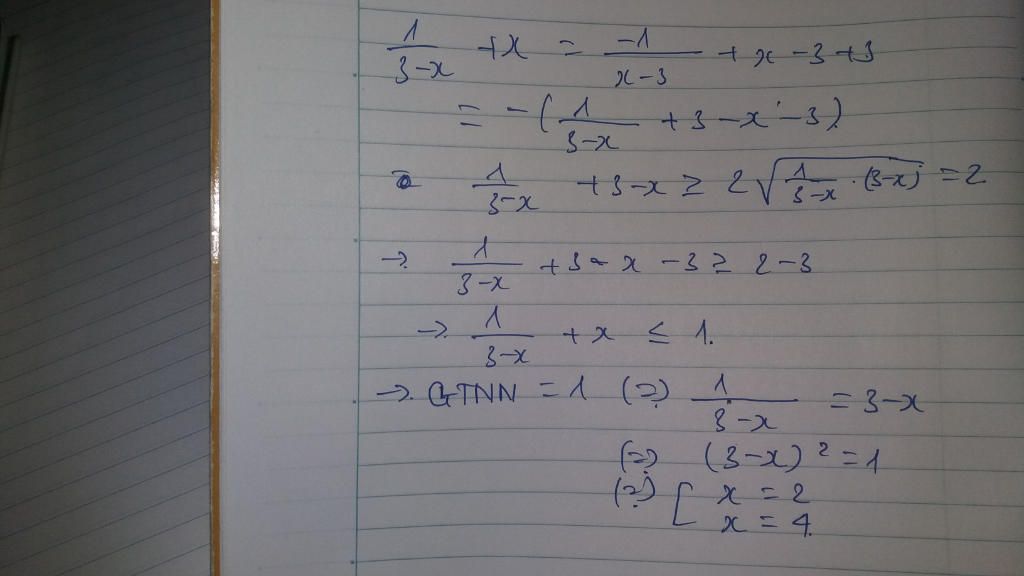 1/(3-x) + x = -1/(x-3) + x - 3 + 3
= -(1/(3-x) + 3 - x - 3)
1/(3-x) + 3 - x ≥ 2√(1/(3-x) · (3-x)) = 2
→ 1/(3-x) + 3 - x - 3 ≥ 2 - 3
→ 1/(3-x) + x ≤ 1.
→ GTNN = 1 (=) 1/(3-x) = 3-x
(=) (3-x)² = 1
(=) [ x = 2
x = 4.